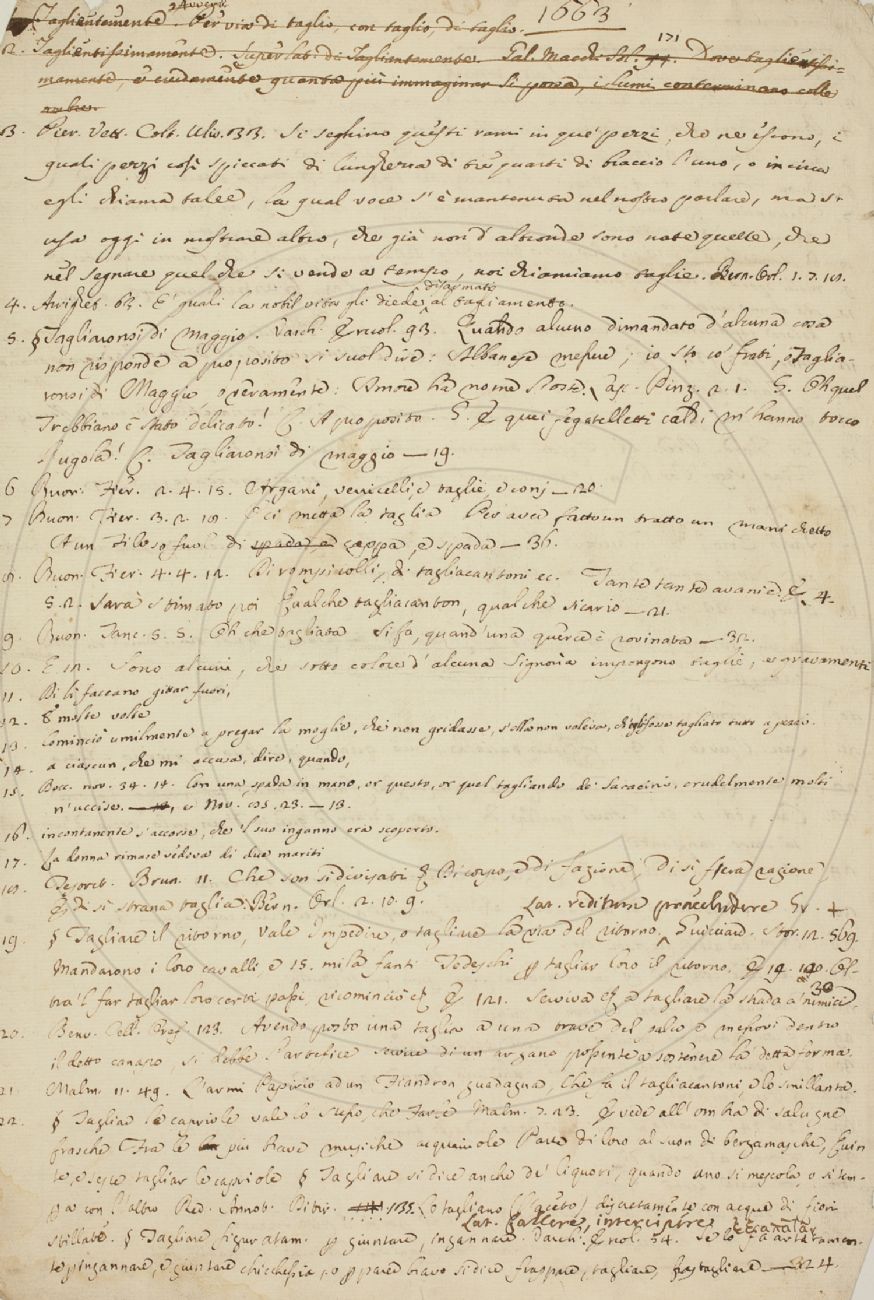 1663
Avverb.
Taglientemente. Per via di taglio, con taglio, di taglio.
171
2. Taglientissimamente. Superlat: di Taglientemente. Gal. Macch. Sol. Dove taglientissi-
mamente, e crudamente quanto più immaginar si possa, i lumi conterminano colle
ombre.
3. Pier. Vett. Colt. Uliv. 133. Si seghino questi rami in que' pezzi, che ne escono, i
quali pezzi così spiccati di lunghezza di tre quarti di braccio l'uno, o in circa
egli chiama talee, la qual voce s'è mantenuta nel nostro parlare, ma s'
usa oggi in mostrare altro, che già non d'altronde sono note quelle, che
nel segnare quel che si vende a tempo, noi chiamiamo taglie. Bern. Orl. 1. 7. 18.
disarmato
4. 63. E' quali la nobil vita gli diede al tagliamento.
5. § Tagliaronsi di Maggio. Varch. Ercol. 93. Quando alcuno dimandato d'alcuna cosa
non risponde a proposito si suol dire: Albanese messere; io sto co' frati, o taglia-
ronsi di Maggio overamente: Amore ha nome l'oste. Pinz. 2. 1. G. Oh quel
Trebbiano è stato delicato! C. A proposito. G. E quei fegatelletti caldi m'hanno tocco
l'ugola! C. Tagliaronsi di maggio — 19.
6 Buon. Fier. 2. 4. 15. Argani, verricelli, e taglie, e conj — 20
7 Buon. Fier. 3. 2. 18. E ci metta la taglia Per aver fatto un tratto un manichetto
A un Filosofuol di spada e cappa, e spada — 36.
8. Buon. Fier. 4. 4. 12. Di rompicolli, di tagliacantoni ec. Tante tante avanie. E 4.
5. 2. Sarà stimato poi Qualche tagliacanton, qualche sicario — 21.
9. Buon. Tanc. 5. 5. Oh che tagliata si fa, quand'una querce è rovinata — 32.
10. E 12. Sono alcuni, che sotto colore d'alcuna Signoria impongono taglie, e gravamenti
11. Di lì faccano gittar fuori,
12. E molte volte
13. Cominciò umilmente a pregar la moglie, che non gridasse, s'ella non voleva, ch'egli fosse tagliato tutto a pezzi.
14. a ciascun, che mi accusa, dire, quando,
15. Bocc. nov. 34. 14. Con una spada in mano, or questo, or quel tagliando de' Saracini, crudelmente molti
n'uccise. — e Nov. 23. — 13.
16. incontanente s'accorse, che 'l suo inganno era scoperto.
17. La donna rimase vedova di due mariti
18. Tesoret. Brun. 11. Che son sì divisati Di corpo, e di fazione, Di sì fiera ragione,
E di sì strana taglia. Bern. Orl. 2. 10. 9. Lat. reditum praecludere Gr. +
19. § Tagliare il ritorno, vale Impedire, o tagliare la via del ritorno. Guicciard. Stor. 12. 569.
Mandarono i loro cavalli, e 15. mila fanti Tedeschi p tagliar loro il ritorno. E 19. Ol-
30
tra 'l far tagliar loro certi passi, ricominciò E 121. Serviva a tagliare la strada a' nimici.
20. Benv. Cell. Oref. 123. Avendo posto una taglia a una trave del palco e messovi dentro
il detto canapo, si debbe l'artefice servire di un argano possente a sostenere la detta forma.
21. Malm. 11. 49. L'armi Papirio ad un Fiandron guadagna, Che fa il tagliacantoni, e lo smillanta.
22. § Tagliar le capriole vale lo stesso, che Farle Malm. 7. 23. E vede all'ombra di salvigne
frasche Fra le più brave musiche acquaiuole Parte di loro al suon di bergamasche, Quin-
te, e seste tagliar le capriole § Tagliare si dice anche de' liquori, quando uno si mescola o si tem-
pra con l'altro Red. Annot. Ditir. 135. Lo tagliano (l'aceto) discretamente con acque di fiori
Lat. fallere, intercipere
stillate. § Tagliare figuratam. p giuntare, ingannare. Varch. Ercol. 54. Se lo fa artatamen-
te p ingannare, e giuntare chichessia, o p parer bravo si dice frappare, tagliare, frastagliare — 224.